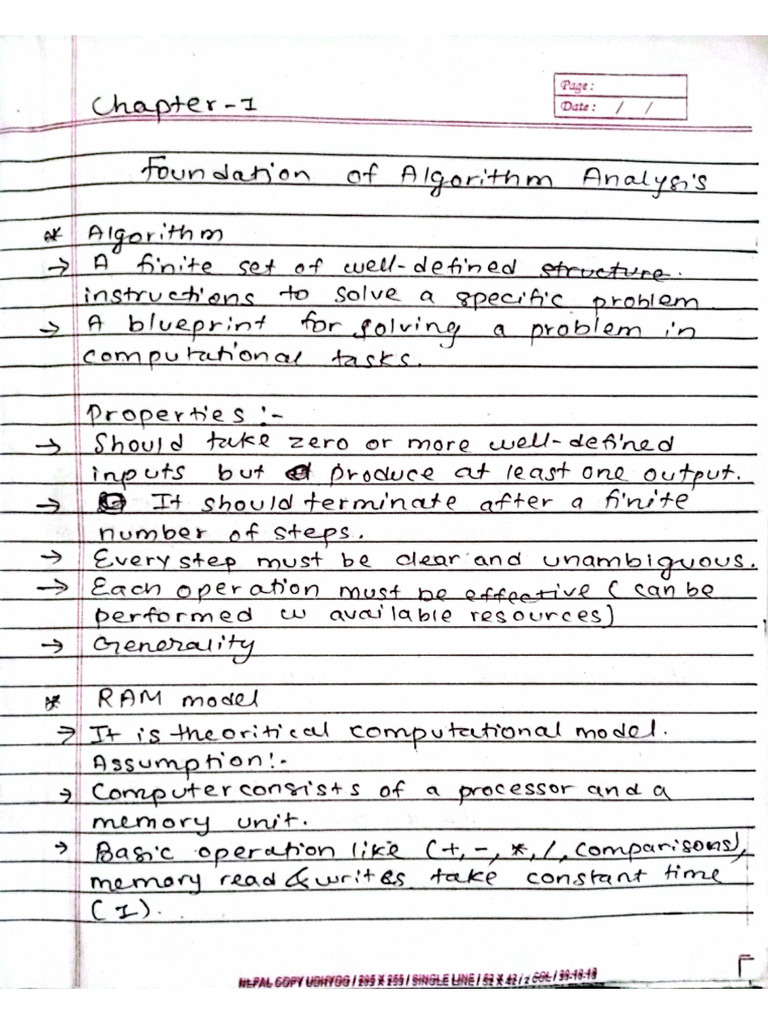 Page:
Date: / /
Chapter-1
Foundation of Algorithm Analysis
* Algorithm
→ A finite set of well-defined structure.
instructions to solve a specific problem
→ A blueprint for solving a problem in
computational tasks.
Properties:-
→ Should take zero or more well-defined
inputs but produce at least one output.
→ It should terminate after a finite
number of steps.
→ Every step must be clear and unambiguous.
→ Each operation must be effective ( can be
performed w available resources)
→ Generality
* RAM model
→ It is theoritical computational model.
Assumption:-
→ Computer consists of a processor and a
memory unit.
→ Basic operation like (+, -, *, /, comparisons),
memory read & writes take constant time
(1).
NEPAL COPY UDHYOG / 205 X 255 / SINGLE LINE / 52 X 42 /